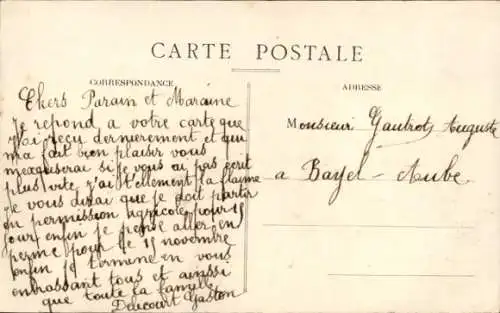 CARTE POSTALE
CORRESPONDANCE
ADRESSE
Chers Parain et Maraine
Je repond a votre carte que
j'ai reçu dernierement et qui
m'a fait bien plaisir vous
si je vous ai pas ecrit
plus vite j'ai tellement la flaime
Je vous dirai que je doit partir
en permission agricole pour 15
jour enfin je pense aller en
perme pour le 15 novembre
enfin je termine en vous
embrassant tous et ainssi
que toute la famille
Delicourt Gaston
Monsieur Gautrot Auguste
a Bayel - Aube